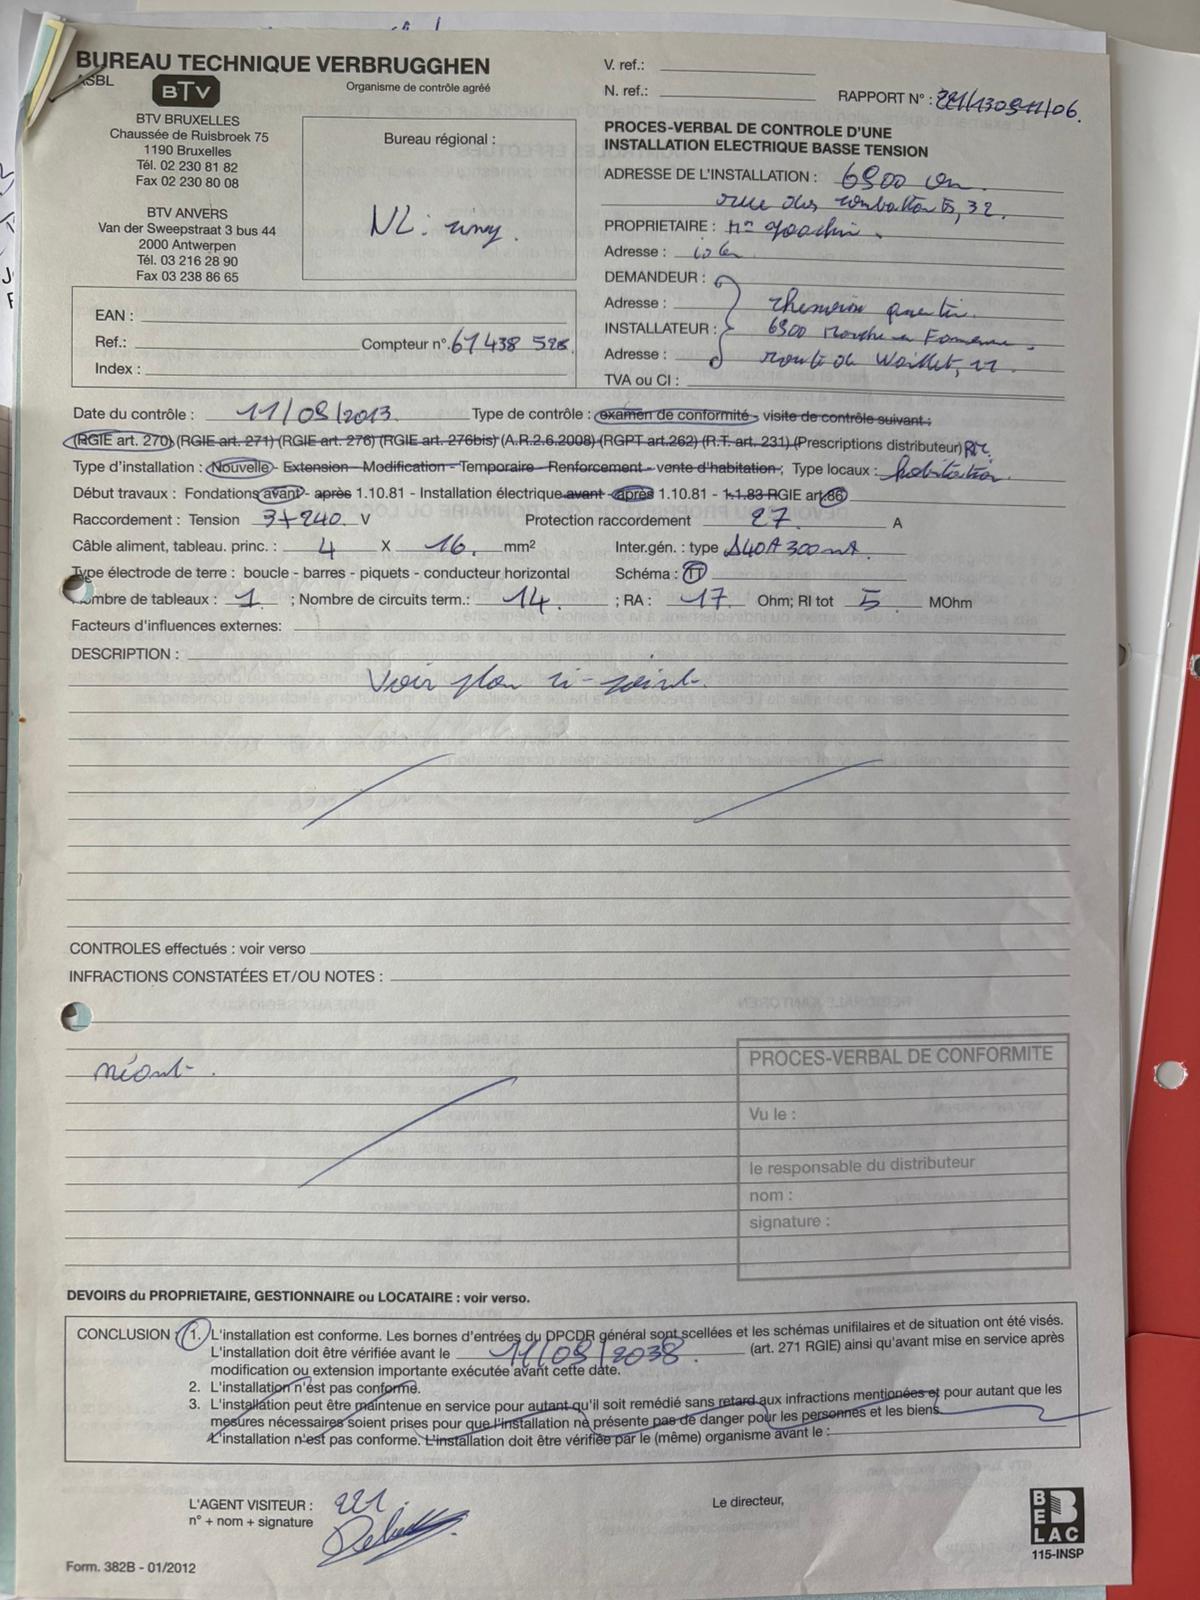 BUREAU TECHNIQUE VERBRUGGHEN
ASBL
BTV
Organisme de contrôle agréé
BTV BRUXELLES
Chaussée de Ruisbroek 75
1190 Bruxelles
Tél. 02 230 81 82
Fax 02 230 80 08
BTV ANVERS
Van der Sweepstraat 3 bus 44
2000 Antwerpen
Tél. 03 216 28 90
Fax 03 238 86 65
Bureau régional :
V. ref.:
N. ref.:
RAPPORT N° :
PROCES-VERBAL DE CONTROLE D'UNE
INSTALLATION ELECTRIQUE BASSE TENSION
ADRESSE DE L'INSTALLATION : 6900
rue des combattants, 32.
PROPRIETAIRE :
Adresse :
DEMANDEUR :
Adresse :
INSTALLATEUR : 6900 Marche en Famenne.
Adresse : route de Waillet, 11.
TVA ou CI :
EAN :
Ref.: Compteur n°.
Index :
Date du contrôle : 11/09/2013. Type de contrôle : examen de conformité - visite de contrôle suivant :
(RGIE art. 270) (RGIE art. 271) (RGIE art. 276) (RGIE art. 276bis) (A.R.2.6.2008) (RGPT art.262) (R.T. art. 231) (Prescriptions distributeur)
Type d'installation : Nouvelle - Extension - Modification - Temporaire - Renforcement - vente d'habitation; Type locaux : habitation
Début travaux : Fondations avant - après 1.10.81 - Installation électrique avant - après 1.10.81 - 1.1.83 RGIE art.86
Raccordement : Tension 3x240. V Protection raccordement 27. A
Câble aliment, tableau. princ. : 4 X 16. mm² Inter.gén. : type Δ40A 300mA.
Type électrode de terre : boucle - barres - piquets - conducteur horizontal Schéma : TT
Nombre de tableaux : 1 ; Nombre de circuits term.: 14. ; RA : 17 Ohm; RI tot 5 MOhm
Facteurs d'influences externes:
DESCRIPTION :
Voir plan ci-joint.
CONTROLES effectués : voir verso
INFRACTIONS CONSTATÉES ET/OU NOTES :
néant.
PROCES-VERBAL DE CONFORMITE
Vu le :
le responsable du distributeur
nom :
signature :
DEVOIRS du PROPRIETAIRE, GESTIONNAIRE ou LOCATAIRE : voir verso.
CONCLUSION : 1. L'installation est conforme. Les bornes d'entrées du DPCDR général sont scellées et les schémas unifilaires et de situation ont été visés.
L'installation doit être vérifiée avant le 11/09/2038. (art. 271 RGIE) ainsi qu'avant mise en service après
modification ou extension importante exécutée avant cette date.
2. L'installation n'est pas conforme.
3. L'installation peut être maintenue en service pour autant qu'il soit remédié sans retard aux infractions mentionées et pour autant que les
mesures nécessaires soient prises pour que l'installation ne présente pas de danger pour les personnes et les biens.
L'installation n'est pas conforme. L'installation doit être vérifiée par le (même) organisme avant le :
L'AGENT VISITEUR : 221.
n° + nom + signature
Le directeur,
BELAC
115-INSP
Form. 382B - 01/2012